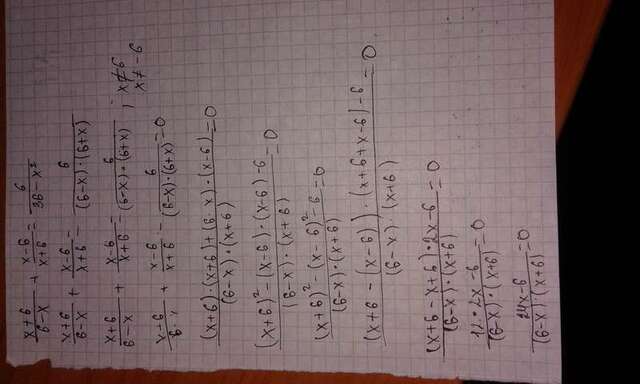 (x+6)/(6-x) + (x-6)/(x+6) = 6/(36-x²)
(x+6)/(6-x) + (x-6)/(x+6) = 6/((6-x)·(6+x))
(x+6)/(6-x) + (x-6)/(x+6) = 6/((6-x)·(6+x)) ; x≠6
x≠-6
(x+6)/(6-x) + (x-6)/(x+6) - 6/((6-x)·(6+x)) = 0
((x+6)·(x+6)+(6-x)·(x-6))/((6-x)·(x+6)) = 0
((x+6)²-(x-6)·(x-6)-6)/((6-x)·(x+6)) = 0
((x+6)²-(x-6)²-6)/((6-x)·(x+6)) = 0
((x+6-(x-6))·(x+6+x-6)-6)/((6-x)·(x+6)) = 0
((x+6-x+6)·2x-6)/((6-x)·(x+6)) = 0
(12·2x-6)/((6-x)·(x+6)) = 0
(24x-6)/((6-x)·(x+6)) = 0